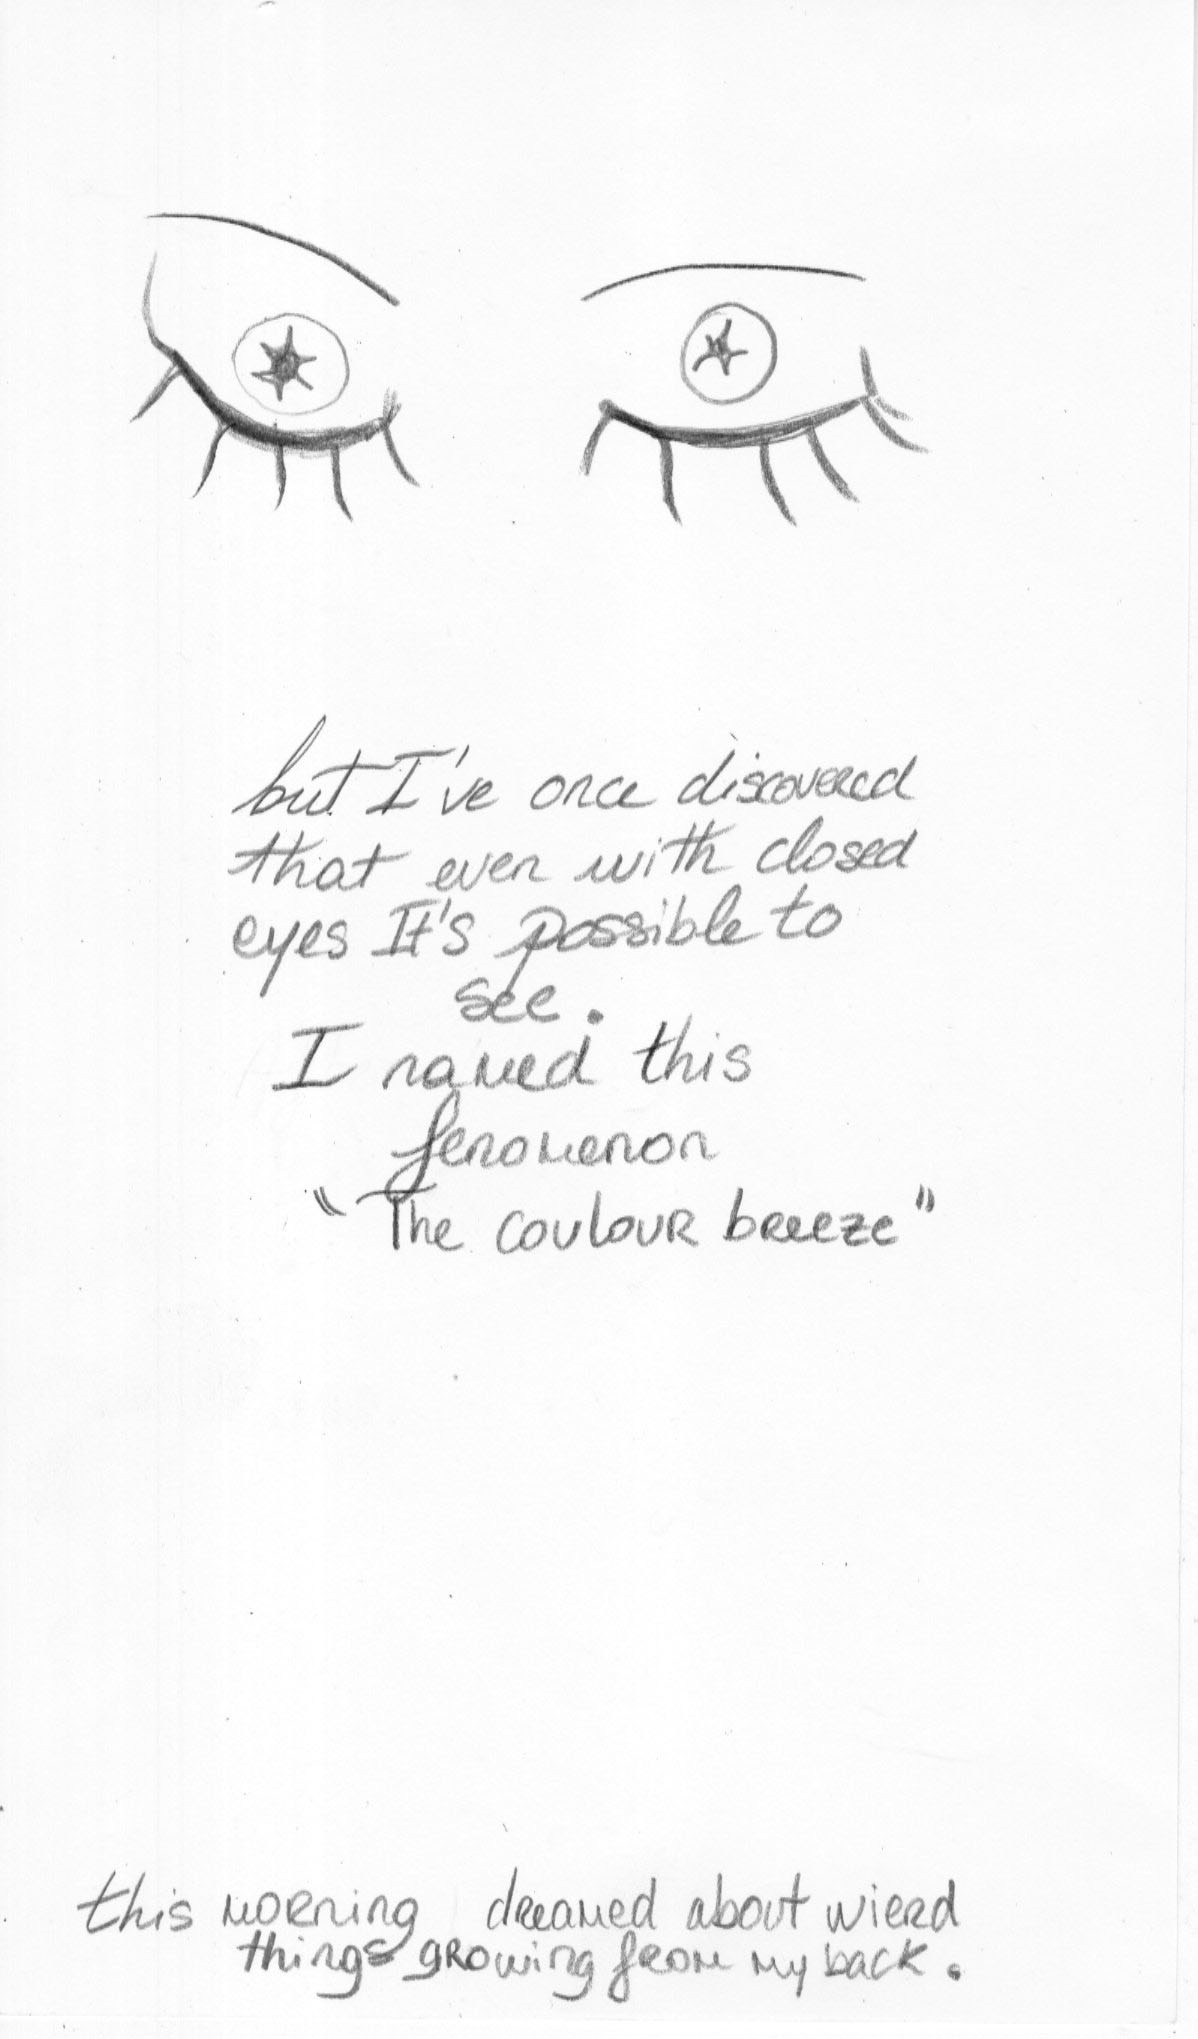 but I've once discovered
that even with closed
eyes It's possible to
see.
I named this
fenomenon
"The coulour breeze"
this morning dreamed about wierd
things growing from my back.